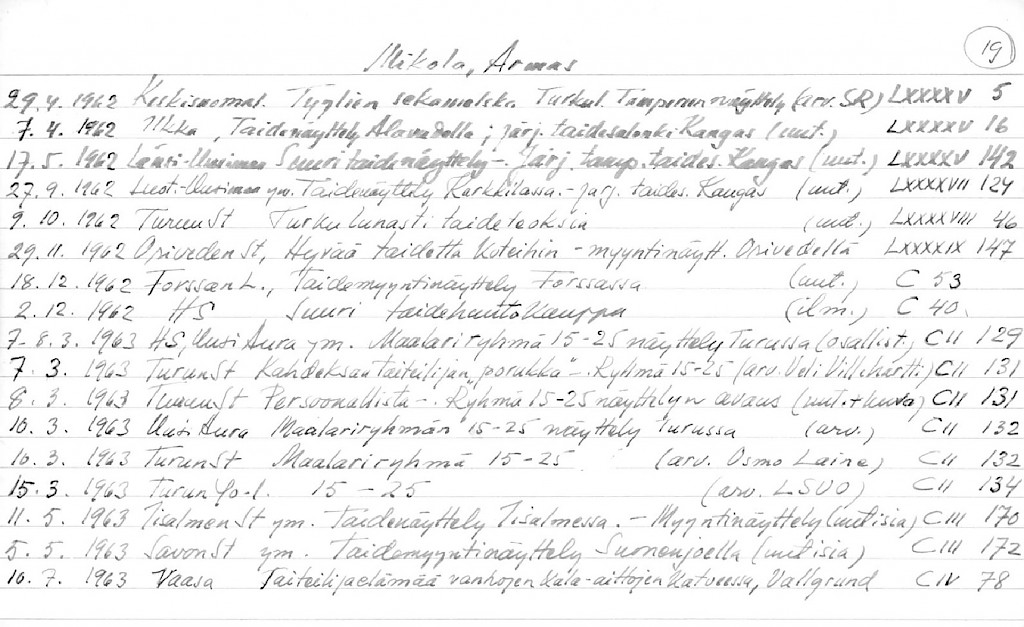 19
Mikola, Armas
29.4. 1962 Keskisuomal. Tyylien sekamelska Turkul. Tampereen näyttely (arv. SR) LXXXXV 5
7. 4. 1962 Ilkka, Taidenäyttely Alavudella; järj. taidesalonki Kangas (uut.) LXXXXV 16
17. 5. 1962 Länsi-Uusimaa Suuri taidenäyttely -. Järj. tamp. taides. Kangas (uut.) LXXXXV 142
27. 9. 1962 Luoti-Uusimaa ym. Taidenäyttely Karkkilassa. - järj. taides. Kangas (uut.) LXXXXVII 124
9. 10. 1962 TurunSt Turku lunasti taideteoksia (uut.) LXXXXVIII 46
29. 11. 1962 OrivedenSt, Hyvää taidetta koteihin - myyntinäytt. Orivedellä LXXXXIX 147
18. 12. 1962 Forssan L., Taidemyyntinäyttely Forssassa (uut.) C 53
2. 12. 1962 HS Suuri taidehuutokauppa (ilm.) C 40.
7-8. 3. 1963 HS, Uusi Aura ym. Maalariryhmä 15-25 näyttely Turussa (osallist.) CII 129
7. 3. 1963 TurunSt Kahdeksan taiteilijan "porukka" -. Ryhmä 15-25 (arv. Veli Villehartti) CII 131
8. 3. 1963 TurunSt Persoonallista -. Ryhmä 15-25 näyttelyn avaus (uut. + kuva) CII 131
10. 3. 1963 Uusi Aura Maalariryhmän 15-25 näyttely Turussa (arv.) CII 132
10. 3. 1963 TurunSt Maalariryhmä 15-25 (arv. Osmo Laine) CII 132
15. 3. 1963 Turun Yo-l. 15 - 25 (arv. LSUO) CII 134
11. 5. 1963 IisalmenSt ym. Taidenäyttely Iisalmessa. - Myyntinäyttely (uutisia) CIII 170
5. 5. 1963 SavonSt ym. Taidemyyntinäyttely Suonenjoella (uutisia) CIII 172
10. 7. 1963 Vaasa Taiteilijaelämää vanhojen kala-aittojen katveessa, Vallgrund CIV 78